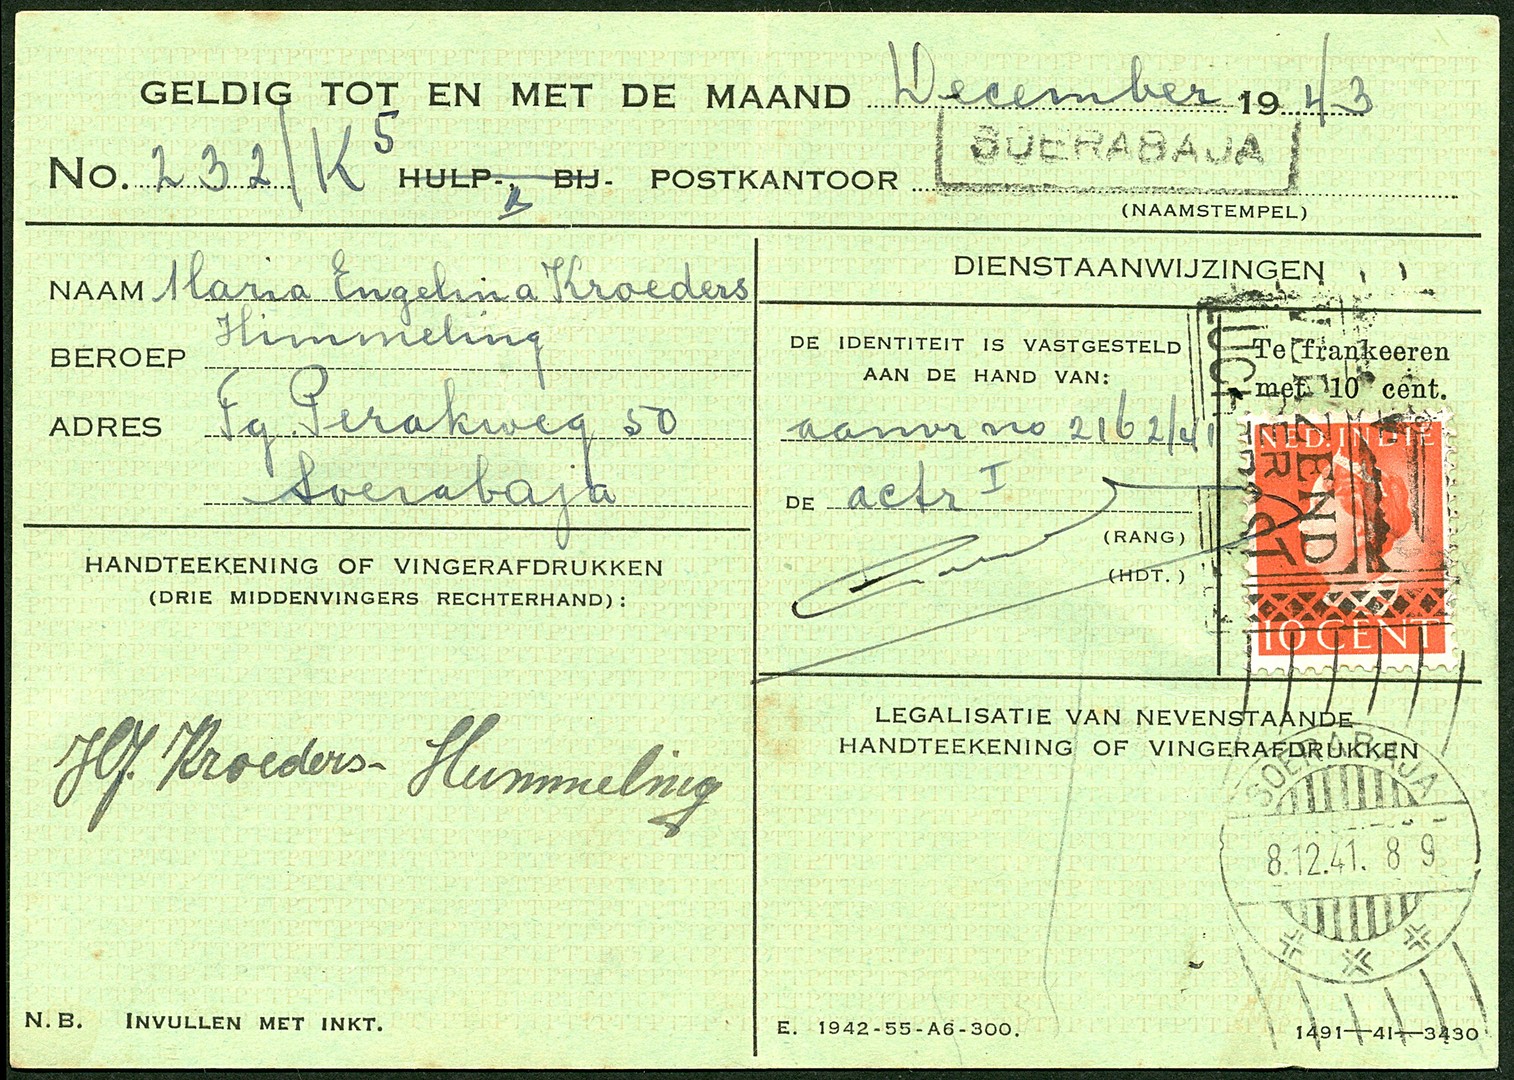 GELDIG TOT EN MET DE MAAND December 1943
No. 232/K5 HULP-, BIJ- POSTKANTOOR SOERABAJA
(NAAMSTEMPEL)
NAAM Maria Engelina Kroeders
Himmeling
BEROEP
ADRES Tg. Perakweg 50
Soerabaja
HANDTEEKENING OF VINGERAFDRUKKEN
(DRIE MIDDENVINGERS RECHTERHAND):
Kroeders- Hummeling
N.B. INVULLEN MET INKT.
DIENSTAANWIJZINGEN
DE IDENTITEIT IS VASTGESTELD
AAN DE HAND VAN:
aanvr no 2162/41
DE actr I
(RANG)
(HDT.)
Te frankeeren
met 10 cent.
NED. INDIE
10 CENT
ZEND
PER
LUCHTPOST
LEGALISATIE VAN NEVENSTAANDE
HANDTEEKENING OF VINGERAFDRUKKEN
SOERABAJA
8.12.41. 8 9
E. 1942-55-A6-300.
1491—41—3430